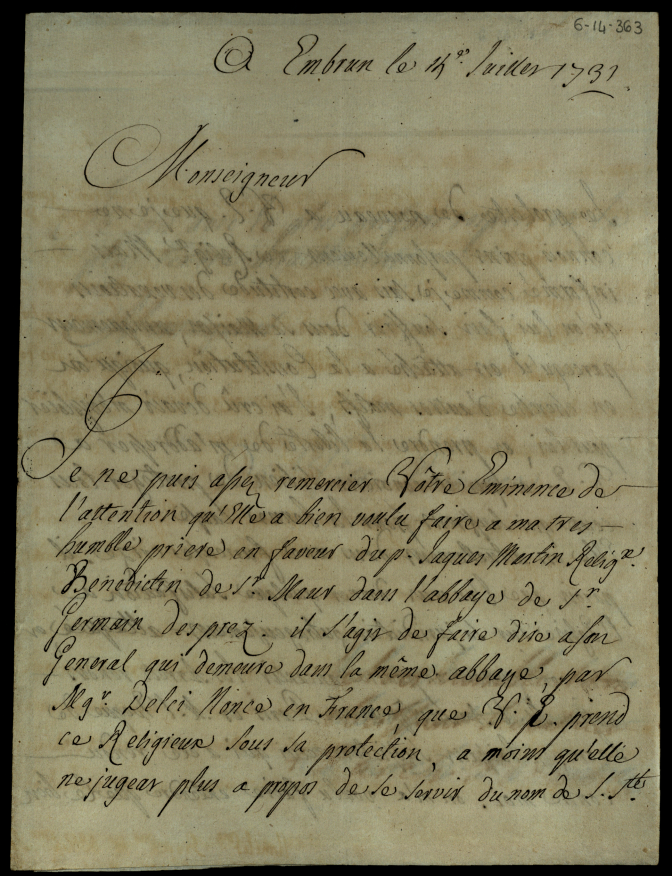 6-14-363
A Embrun le 14e. Juillet 1731
Monseigneur
Je ne puis assez remercier Vôtre Eminence de
l'attention qu'Elle a bien voulu faire a ma tres
humble priere en faveur du p. Jaques Martin Religx.
Benedictin de St. Maur dans l'abbaye de St.
Germain des prez. il s'agit de faire dire a son
General qui demeure dans la même abbaye, par
Mgr. Delci Nonce en France, que V. E. prend
ce Religieux sous sa protection, a moins qu'elle
ne jugeat plus a propos de se servir du nom de S. Stté